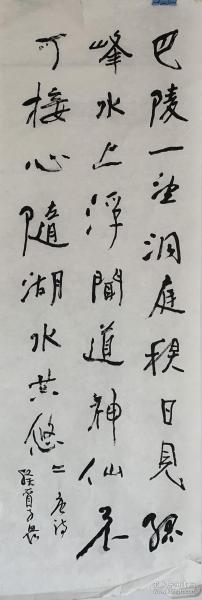 巴陵一望洞庭秋日見孤
峰水上浮聞道神仙不
可接心隨湖水共悠々唐诗